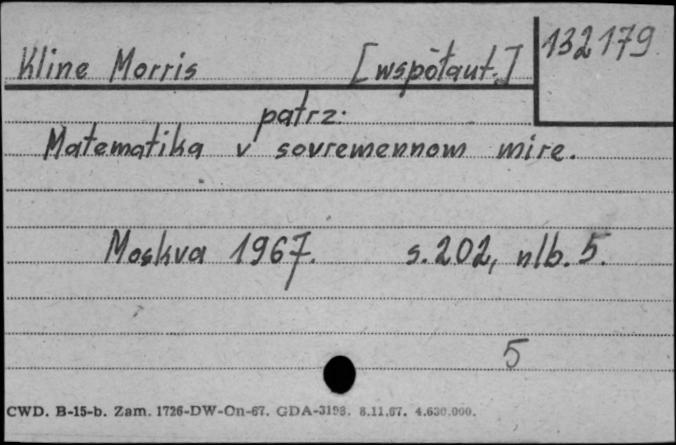 Kline Morris [współaut.] 132179
patrz:
Matematika v sovremennom mire.
Moskva 1967. s. 202, nlb. 5.
5
CWD. B-15-b. Zam. 1726-DW-On-67. GDA-3198. 8.11.67. 4.630.000.